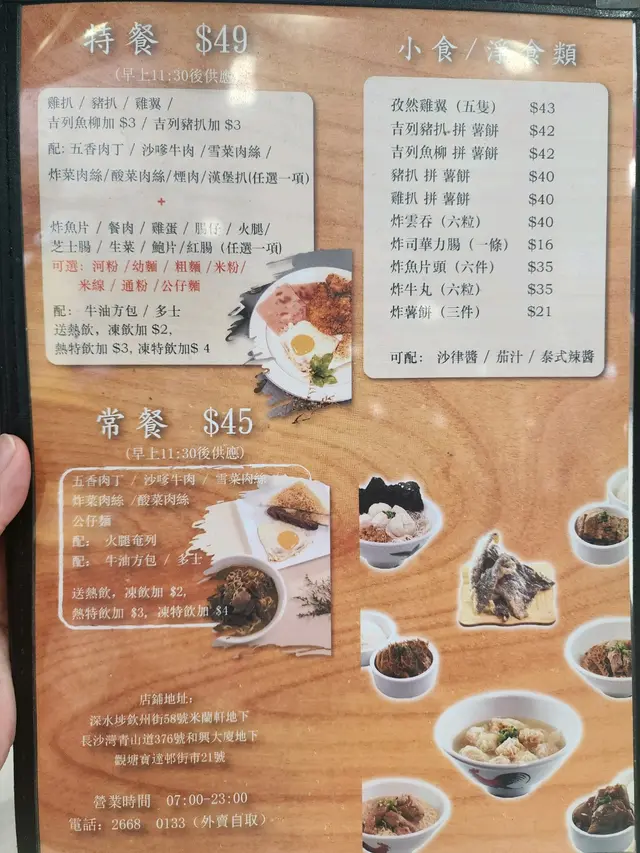 特餐 $49
(早上11:30後供應)
雞扒 / 豬扒 / 雞翼 /
吉列魚柳加 $3 / 吉列豬扒加 $3
配: 五香肉丁 / 沙嗲牛肉 / 雪菜肉絲 /
炸菜肉絲/酸菜肉絲/煙肉/漢堡扒(任選一項)
+
炸魚片 / 餐肉 / 雞蛋 / 腸仔 / 火腿/
芝士腸 / 生菜 / 鮑片/紅腸 (任選一項)
可選: 河粉/幼麵 / 粗麵 /米粉/
米線 / 通粉 /公仔麵
配: 牛油方包 / 多士
送熱飲, 凍飲加 $2,
熱特飲加 $3, 凍特飲加$ 4
常餐 $45
(早上11:30後供應)
五香肉丁 / 沙嗲牛肉 / 雪菜肉絲
炸菜肉絲 /酸菜肉絲
公仔麵
配: 火腿奄列
配: 牛油方包 / 多士
送熱飲, 凍飲加 $2,
熱特飲加 $3, 凍特飲加 $4
店鋪地址:
深水埗欽州街58號米蘭軒地下
長沙灣青山道376號和興大廈地下
觀塘寶達邨街市21號
營業時間 07:00-23:00
電話: 2668 0133 (外賣自取)
小食/淨食類
孜然雞翼 (五隻) $43
吉列豬扒 拼 薯餅 $42
吉列魚柳 拼 薯餅 $42
豬扒 拼 薯餅 $40
雞扒 拼 薯餅 $40
炸雲吞 (六粒) $40
炸司華力腸 (一條) $16
炸魚片頭 (六件) $35
炸牛丸 (六粒) $35
炸薯餅 (三件) $21
可配: 沙律醬 / 茄汁 / 泰式辣醬